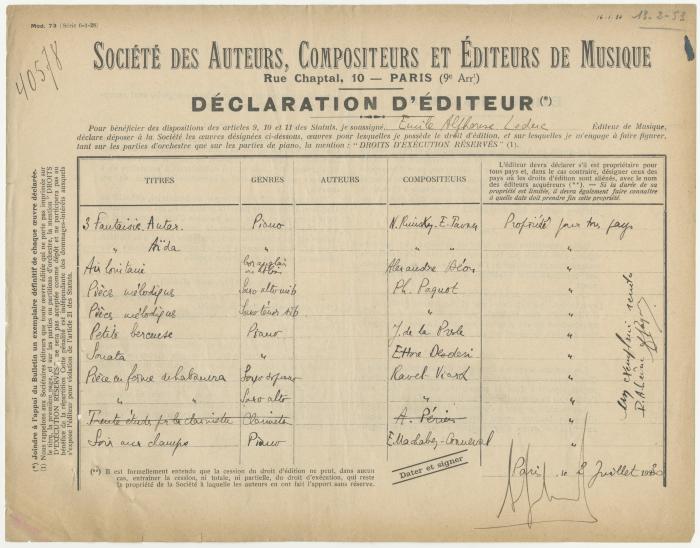 Mod. 73 (Série 6-1-28)
16.1.36 18-2-53
40578
SOCIÉTÉ DES AUTEURS, COMPOSITEURS ET ÉDITEURS DE MUSIQUE
Rue Chaptal, 10 — PARIS (9e Arrt)
DÉCLARATION D'ÉDITEUR (*)
Pour bénéficier des dispositions des articles 9, 10 et 11 des Statuts, je soussigné, Emile Alphonse Leduc Éditeur de Musique,
déclare déposer à la Société les œuvres désignées ci-dessous, œuvres pour lesquelles je possède le droit d'édition, et sur lesquelles je m'engage à faire figurer,
tant sur les parties d'orchestre que sur les parties de piano, la mention : "DROITS D'EXÉCUTION RÉSERVÉS" (1).
TITRES GENRES AUTEURS COMPOSITEURS
L'éditeur devra déclarer s'il est propriétaire pour
tous pays et, dans le cas contraire, désigner ceux des
pays où les droits d'édition sont aliénés, avec le nom
des éditeurs acquéreurs (**). — Si la durée de sa
propriété est limitée, il devra également faire connaître
à quelle date doit prendre fin cette propriété.
3 Fantaisie. Piano Propriété pour tous pays
" Aïda " " "
Air lointain Cor anglais Alexandre "
Pièces mélodiques Saxo alto mib Ph. Paquot "
Pièces mélodiques Saxo ténor sib " "
Petite berceuse Piano J. de la "
Sonata " Ettore Desderi "
Pièce en forme de habanera Saxo soprano Ravel-Viard "
" " Saxo alto " "
Trente études pr la clarinette Clarinette A. Périer "
Soir aux champs Piano E. Machabey "
un exemplaire rendu
(*) Joindre à l'appui du Bulletin un exemplaire définitif de chaque œuvre déclarée.
(1) Nous rappelons aux Sociétaires éditeurs que toute œuvre éditée qui ne porte pas imprimée sur
le titre, la première page, et sur les parties ou partitions d'orchestre, la mention "DROITS
D'EXÉCUTION RÉSERVÉS", ne sera pas acceptée comme dépôt et ne participera pas au
bénéfice de la répartition. Cette pénalité est indépendante des dommages-intérêts auxquels
s'expose l'éditeur pour violation de l'article 21 des Statuts.
(**) Il est formellement entendu que la cession du droit d'édition ne peut, dans aucun
cas, entraîner la cession, ni totale, ni partielle, du droit d'exécution, qui reste
la propriété de la Société à laquelle les auteurs en ont fait l'apport sans réserve.
Dater et signer
Paris, le 2 Juillet